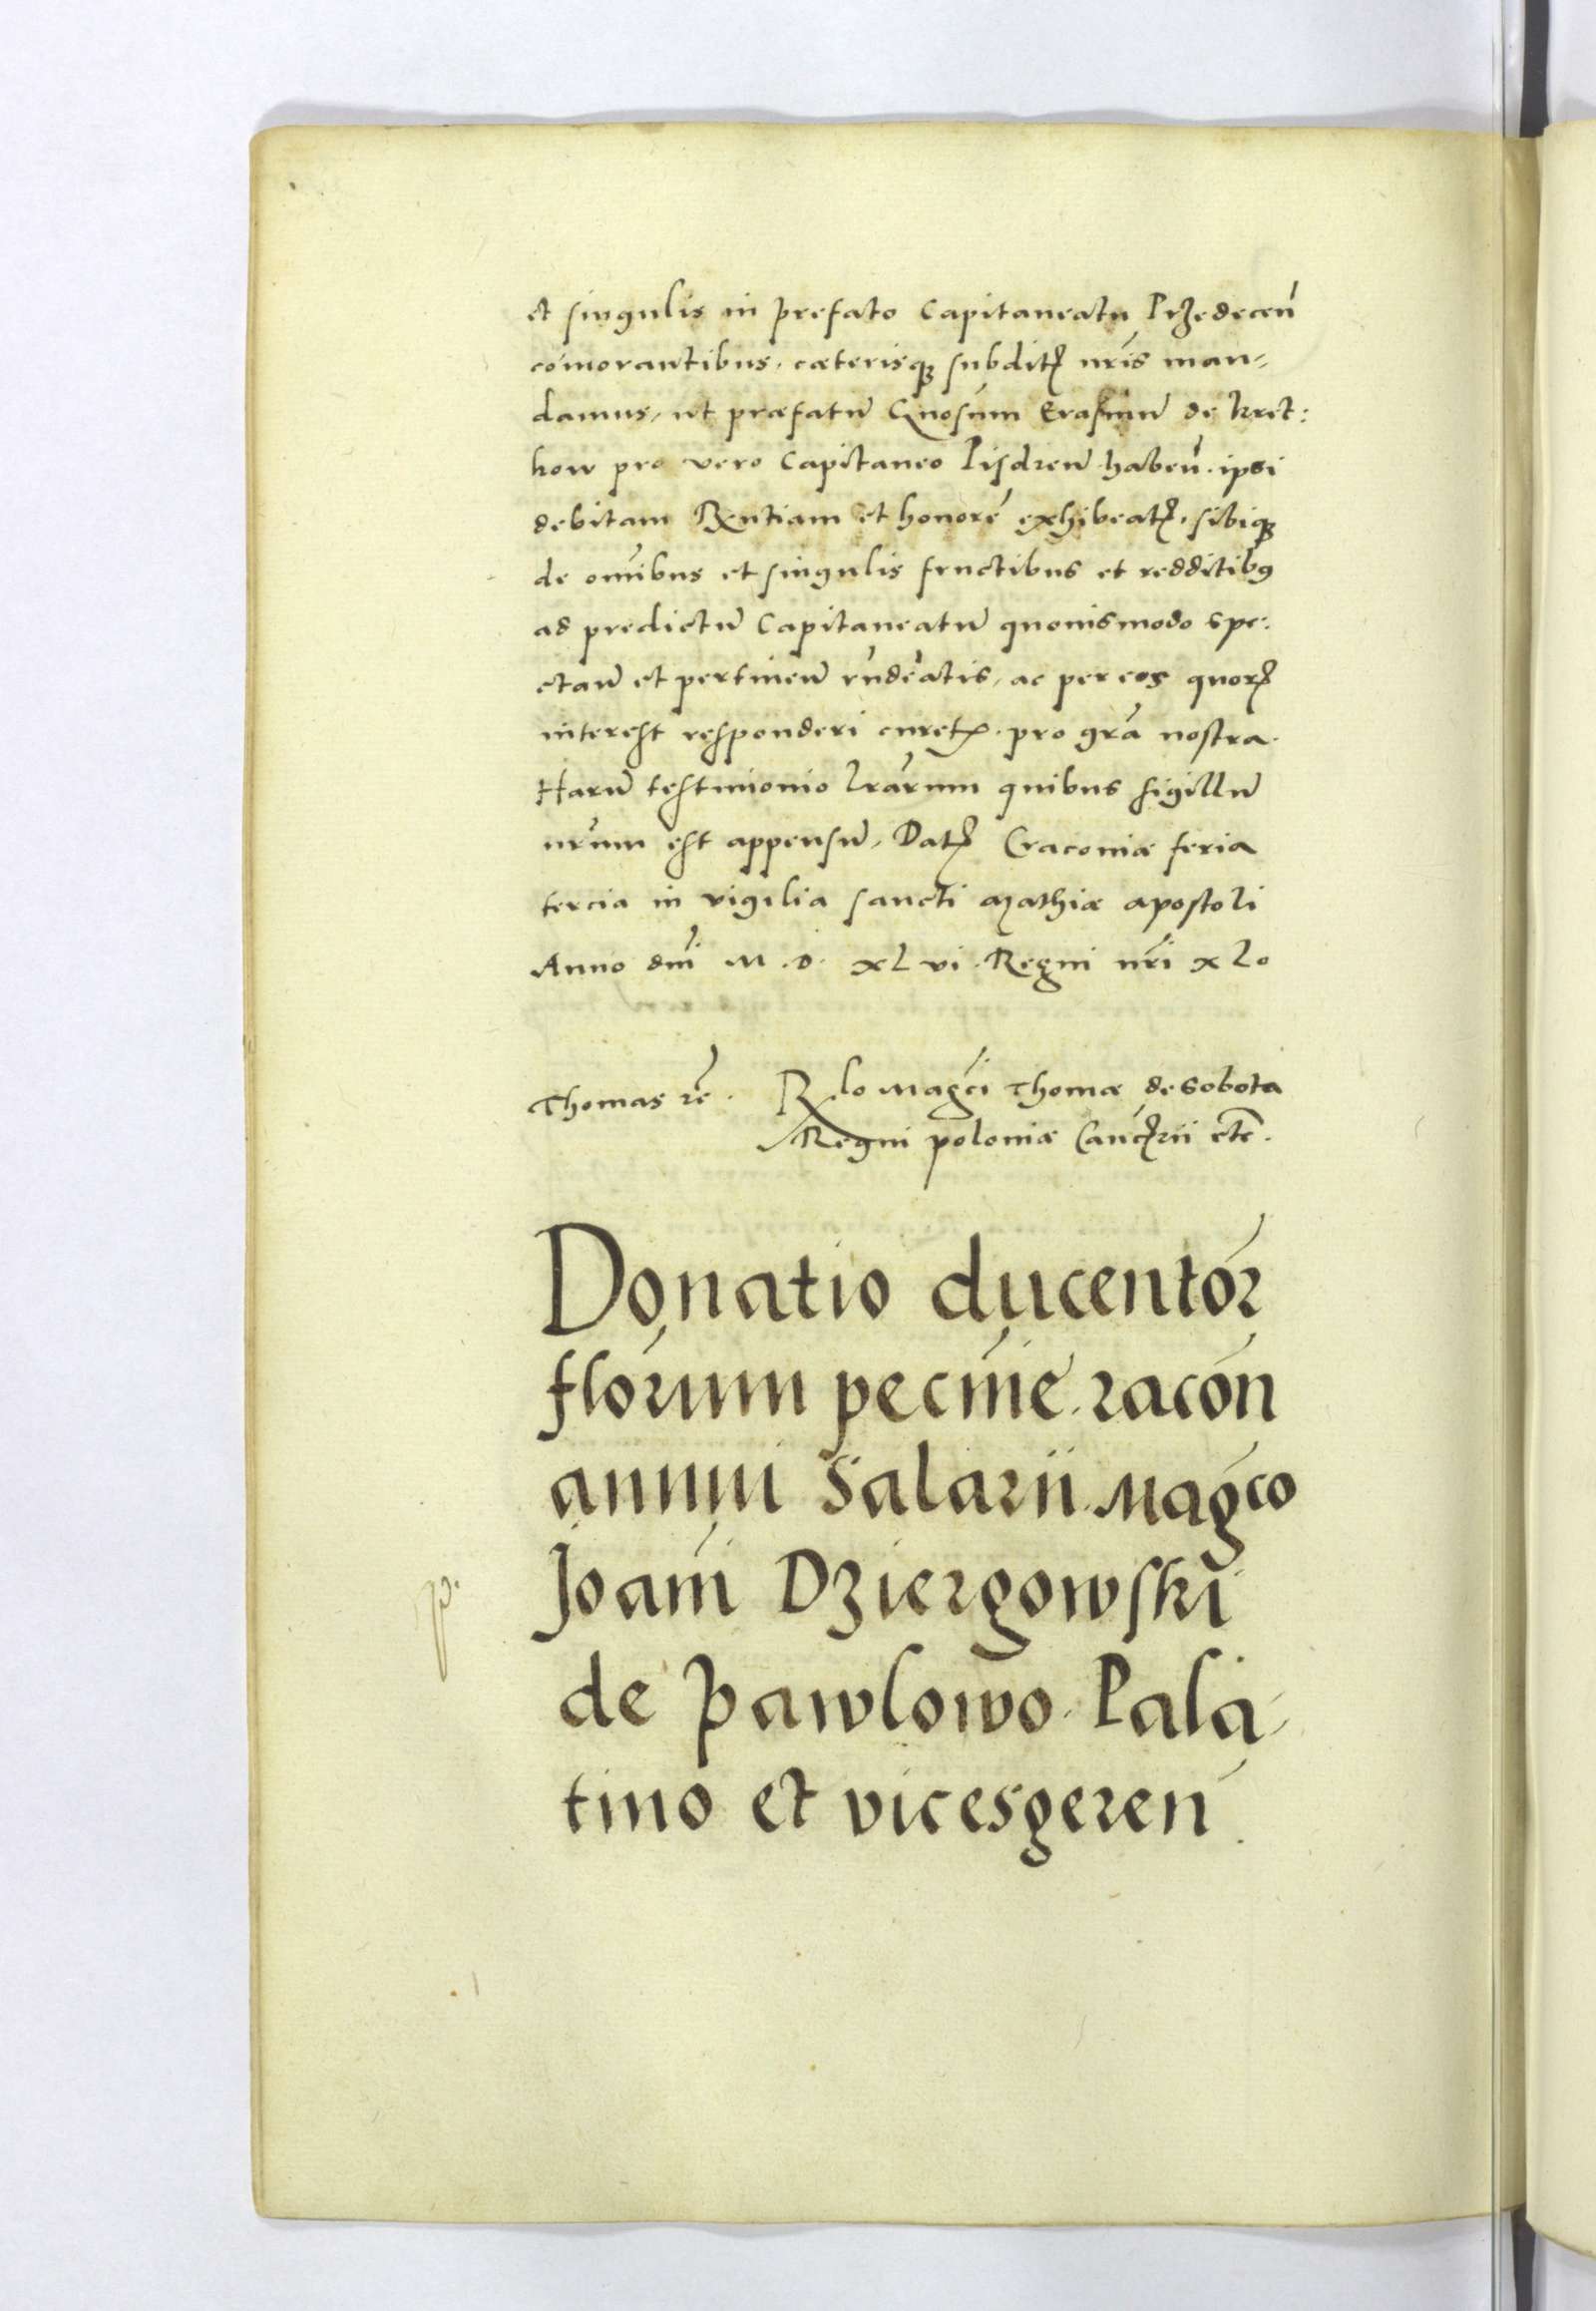 et singulis in prefato Capitaneatu Przedecen̄
com̄orantibus. cæterisq₃ subditꝭ nr̄is man⸗
damus, ut præfatū Gn̄osum Erasmū de Kret:
kow pro vero Capitaneo Pisdren̄ haben̄. ipsi
debitam Rx̄ntiam et honorē exhibeatꝭ, sibiq₃
de om̄ibus et singulis fructibus et redditibꝰ
ad predictū Capitaneatū quouismodo spe:
ctan̄ et pertinen̄ rn̄deatis, ac per eos quorꝭ
interest responderi curetꝭ. pro gr̄a nostra.
Harū testimonio lr̄arum quibus sigillū
nr̄um est appensū, Datꝭ Cracouiæ feria
tercia in vigilia sancti Mathiæ apostoli
Anno dn̄i M.D. XLVI. Regni nr̄i XLo
Thomas rē. Rlo Maḡci Thomæ de Sobota
Regni poloniæ Can̄cꝭrii etc̄.
Donatio ducentor̄
flor̄um pecun̄ie. racōn
annui Salarii. Maḡco
Joan̄i Dziergowski
p. de Pawlowo. Pala⸗
tino et vicesgeren̄.